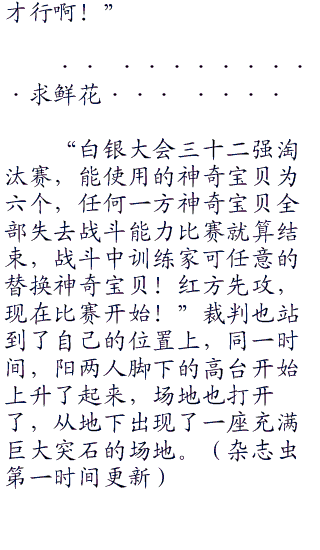 才行啊！”
．．．．．．．．．．
．求鲜花．．．．．．．
“白银大会三十二强淘
汰赛，能使用的神奇宝贝为
六个，任何一方神奇宝贝全
部失去战斗能力比赛就算结
束，战斗中训练家可任意的
替换神奇宝贝！红方先攻，
现在比赛开始！”裁判也站
到了自己的位置上，同一时
间，阳两人脚下的高台开始
上升了起来，场地也打开
了，从地下出现了一座充满
巨大突石的场地。（杂志虫
第一时间更新）